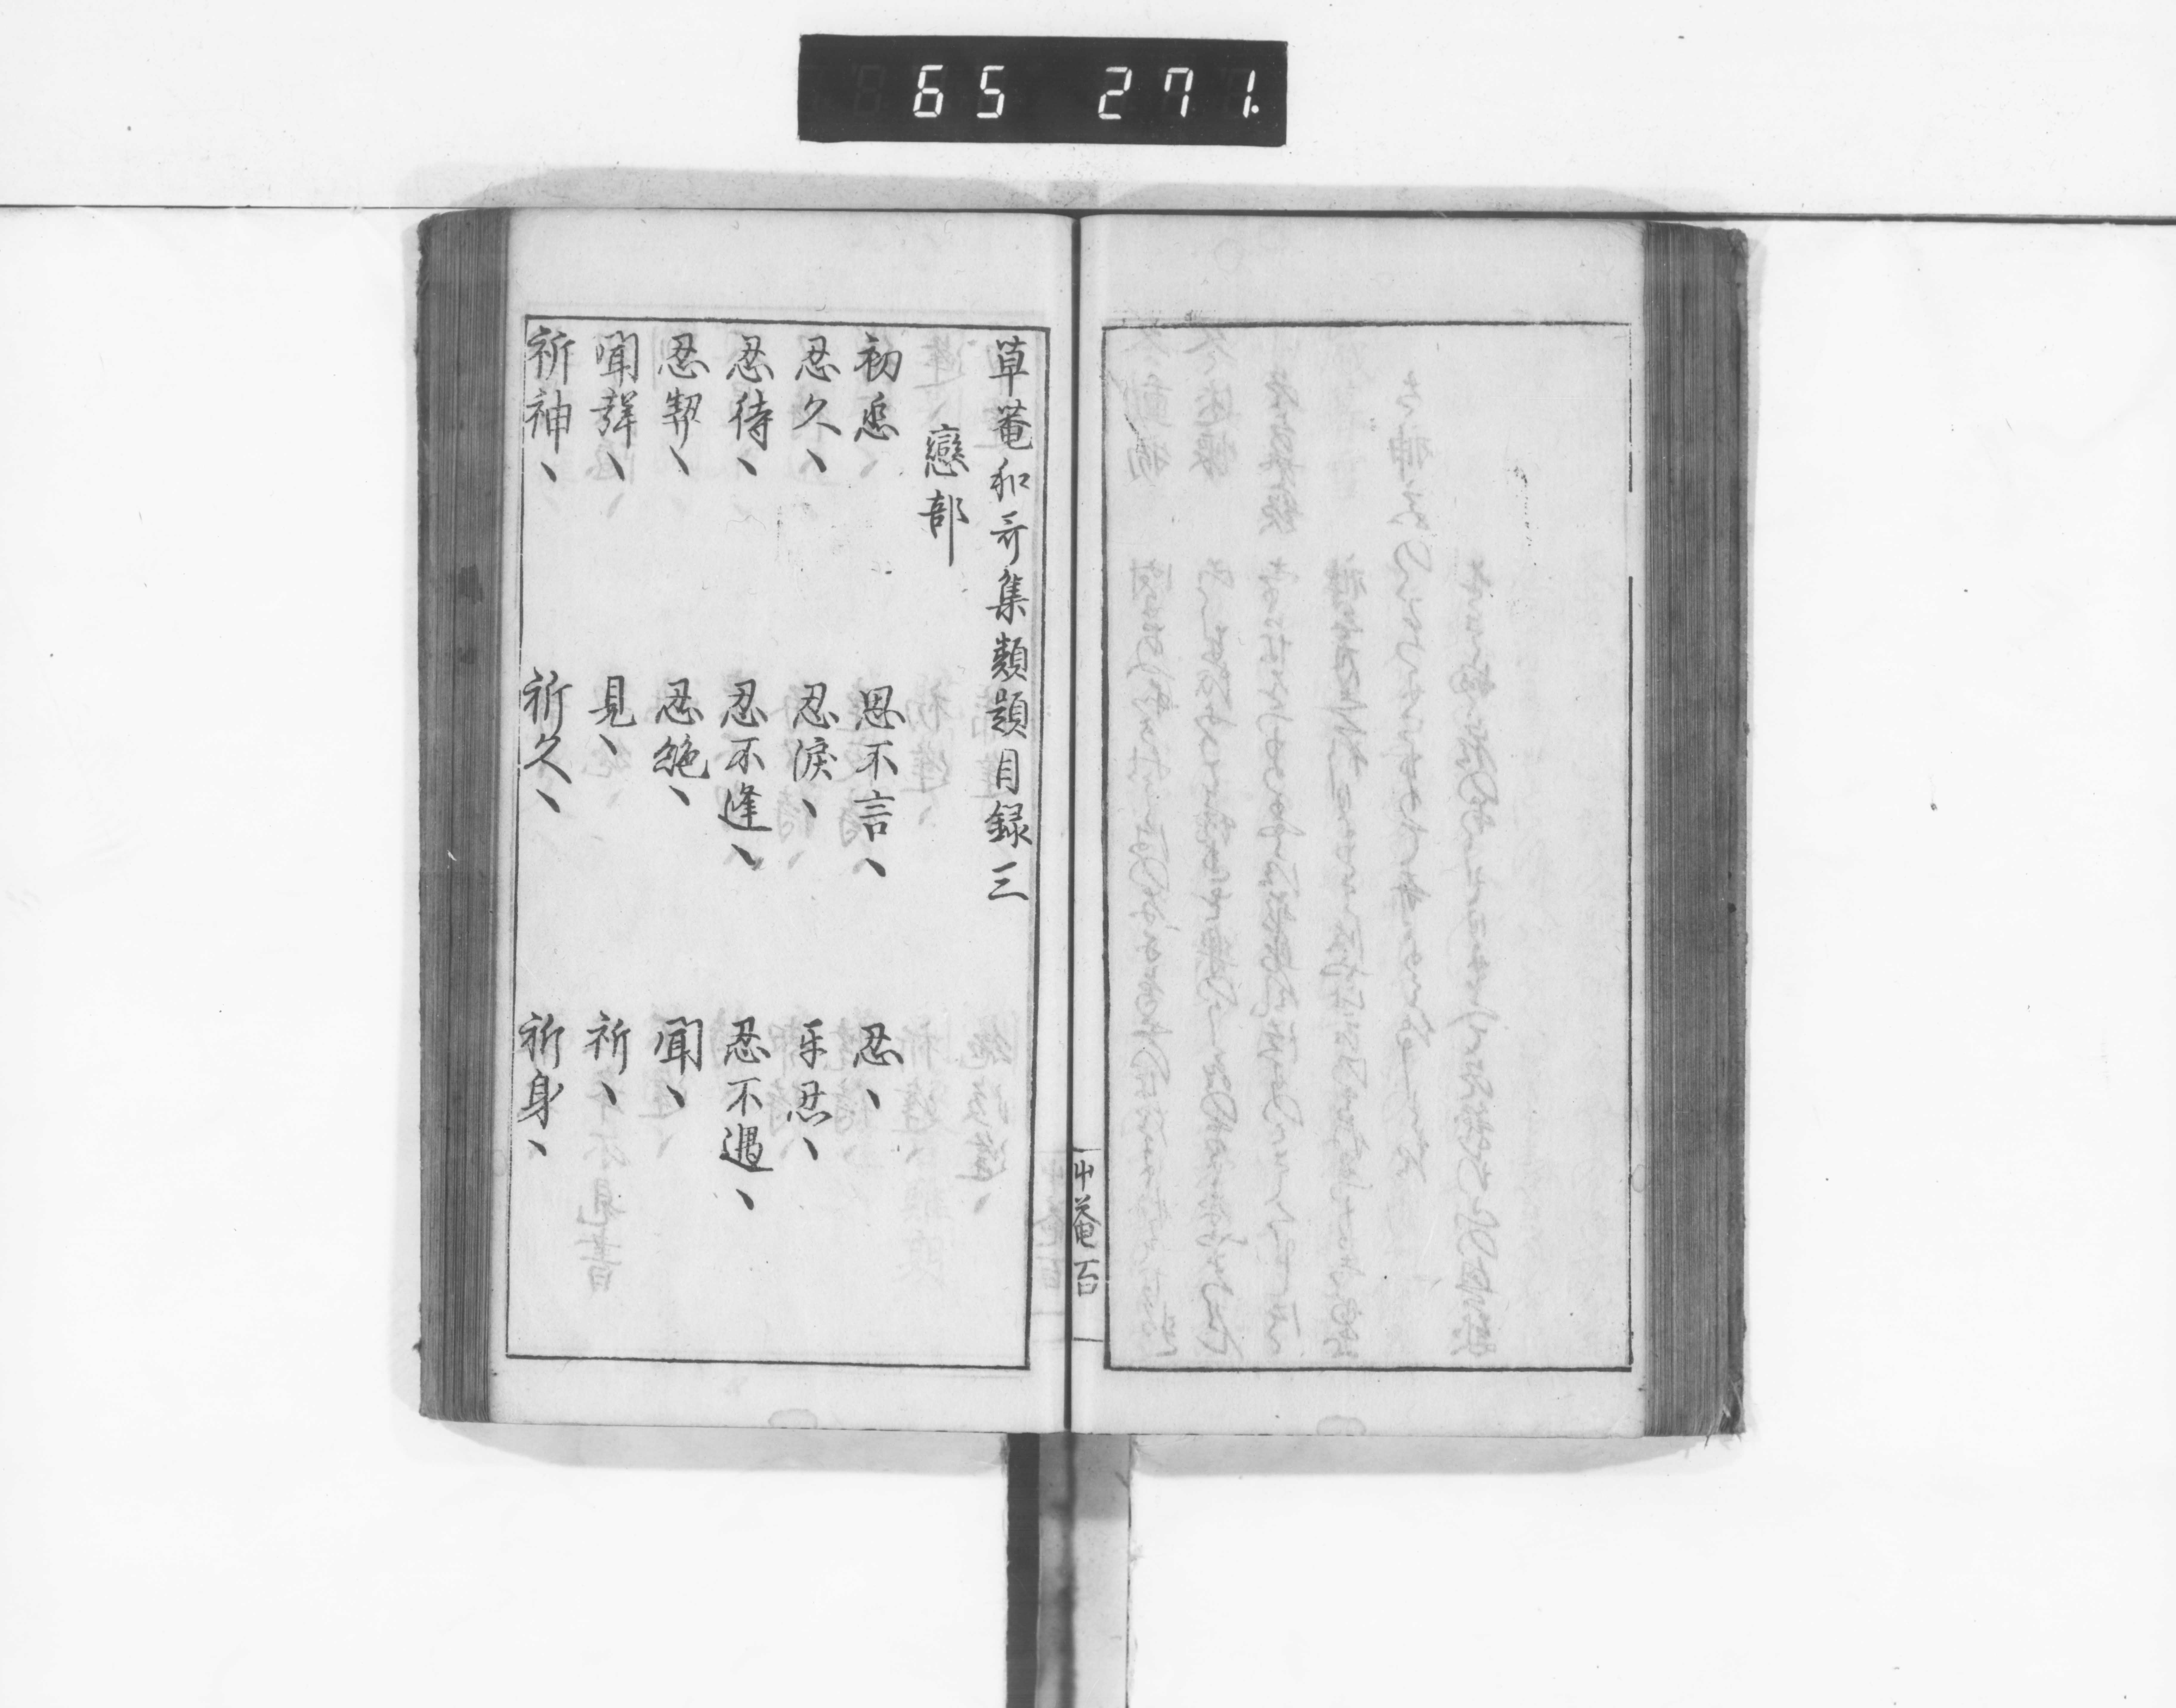 65 271.
草菴和哥集類題目録三
戀部
初恋 思不言、 忍、
忍久、 忍涙、 乍忍、
忍待、 忍不逢、 忍不遇、
忍契、 忍絶、 聞、
聞聲、 見、 祈、
祈神、 祈久、 祈身、
屮菴 百